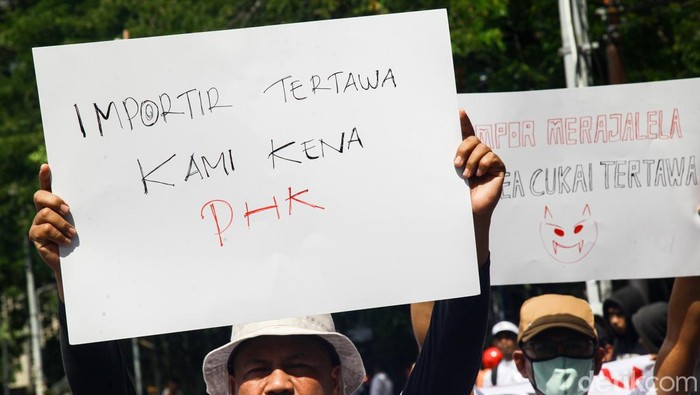 IMPORTIR TERTAWA
KAMI KENA
PHK
MPOR MERAJALELA
EA CUKAI TERTAWA
detikcom